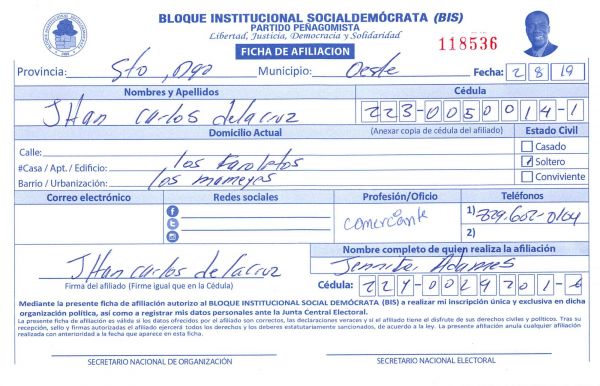 BLOQUE INSTITUCIONAL SOCIALDEMÓCRATA (BIS)
PARTIDO PEÑAGOMISTA
Libertad, Justicia, Democracia y Solidaridad
FICHA DE AFILIACION
118536
Provincia: Sto, Dgo Municipio: Oeste Fecha: 2 8 19
Nombres y Apellidos Cédula
JHan Carlos delacruz 223-0050014-1
Domicilio Actual (Anexar copia de cédula del afiliado) Estado Civil
Calle: Casado
#Casa / Apt. / Edificio: los Soltero
Barrio / Urbanización: los mameyes Conviviente
Correo electrónico Redes sociales Profesión/Oficio Teléfonos
comerciante
1) 829-602-0104
2)
Nombre completo de quien realiza la afiliación
JHan Carlos delacruz Jennifer Adames
Firma del afiliado (Firme igual que en la Cédula) Cédula: 224-0029701-6
Mediante la presente ficha de afiliación autorizo al BLOQUE INSTITUCIONAL SOCIAL DEMÓCRATA (BIS) a realizar mi inscripción única y exclusiva en dicha
organización política, así como a registrar mis datos personales ante la Junta Central Electoral.
La presente ficha de afiliación es válida si los datos ofrecidos por el afiliado son correctos, las declaraciones veraces y si el afiliado tiene el disfrute de sus derechos civiles y políticos. Tras su
recepción, sello y firmas autorizadas el afiliado ejercerá todos los derechos y los deberes estatutariamente sancionados, de acuerdo a la ley. La presente afiliación anula cualquier afiliación
realizada con anterioridad a la fecha que aparece en esta ficha.
SECRETARIO NACIONAL DE ORGANIZACIÓN SECRETARIO NACIONAL ELECTORAL